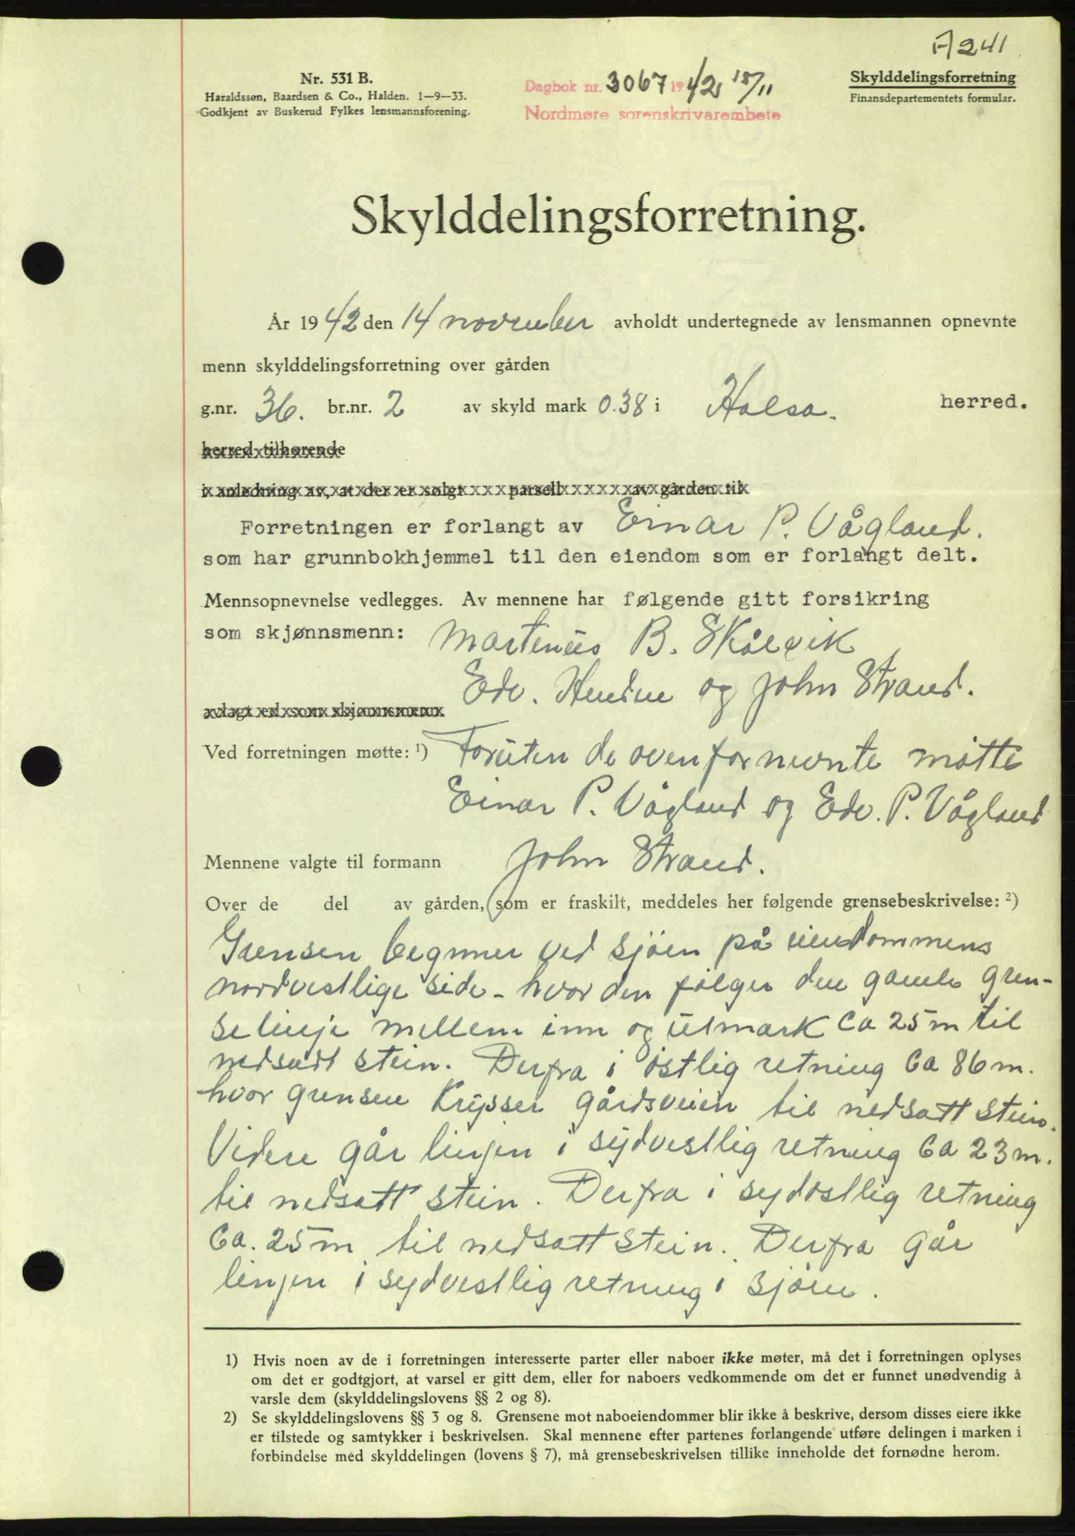 A 241
Nr. 531 B.
Haraldssøn, Baardsen & Co., Halden. 1-9-33.
Godkjent av Buskerud Fylkes lensmannsforening.
Dagbok nr. 3067 1942 18/11
Nordmøre sorenskrivarembete
Skylddelingsforretning
Finansdepartementets formular.
Skylddelingsforretning.
År 1942 den 14 november avholdt undertegnede av lensmannen opnevnte
menn skylddelingsforretning over gården
g.nr. 36. br.nr. 2 av skyld mark 0.38 i Halsa. herred.
herred tilhørende
i anledning av, at der er solgt parsell av gården til
Forretningen er forlangt av Einar P. Vågland.
som har grunnbokhjemmel til den eiendom som er forlangt delt.
Mennsopnevnelse vedlegges. Av mennene har følgende gitt forsikring
som skjønnsmenn: Martinus B. Skålvik
Edv. Henden og John Strand.
avlagt ed som skjønnsmenn
Ved forretningen møtte: 1) Foruten de ovenfornevnte møtte
Einar P. Vågland og Edv. P. Vågland
Mennene valgte til formann John Strand.
Over de del av gården, som er fraskilt, meddeles her følgende grensebeskrivelse: 2)
Grensen begynner ved sjøen på eiendommens
nordvestlige side - hvor den følger den gamle gren-
selinje mellem inn og utmark ca 25 m til
nedsatt stein. Derfra i østlig retning ca 86 m.
hvor grensen krysser gårdsveien til nedsatt stein.
Videre går linjen i sydvestlig retning ca 23 m.
til nedsatt stein. Derfra i sydøstlig retning
ca. 25 m til nedsatt stein. Derfra går
linjen i sydvestlig retning i sjøen.
1) Hvis noen av de i forretningen interesserte parter eller naboer ikke møter, må det i forretningen oplyses
om det er godtgjort, at varsel er gitt dem, eller for naboers vedkommende om det er funnet unødvendig å
varsle dem (skylddelingslovens §§ 2 og 8).
2) Se skylddelingslovens §§ 3 og 8. Grensene mot naboeiendommer blir ikke å beskrive, dersom disses eiere ikke
er tilstede og samtykker i beskrivelsen. Skal mennene efter partenes forlangende utføre delingen i marken i
forbindelse med skylddelingen (lovens § 7), må grensebeskrivelsen tillike inneholde det fornødne herom.